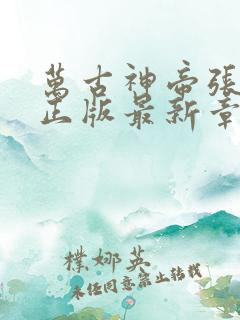 萬古神帝張
正版最新章
樸娜英
未經同意禁止轉載